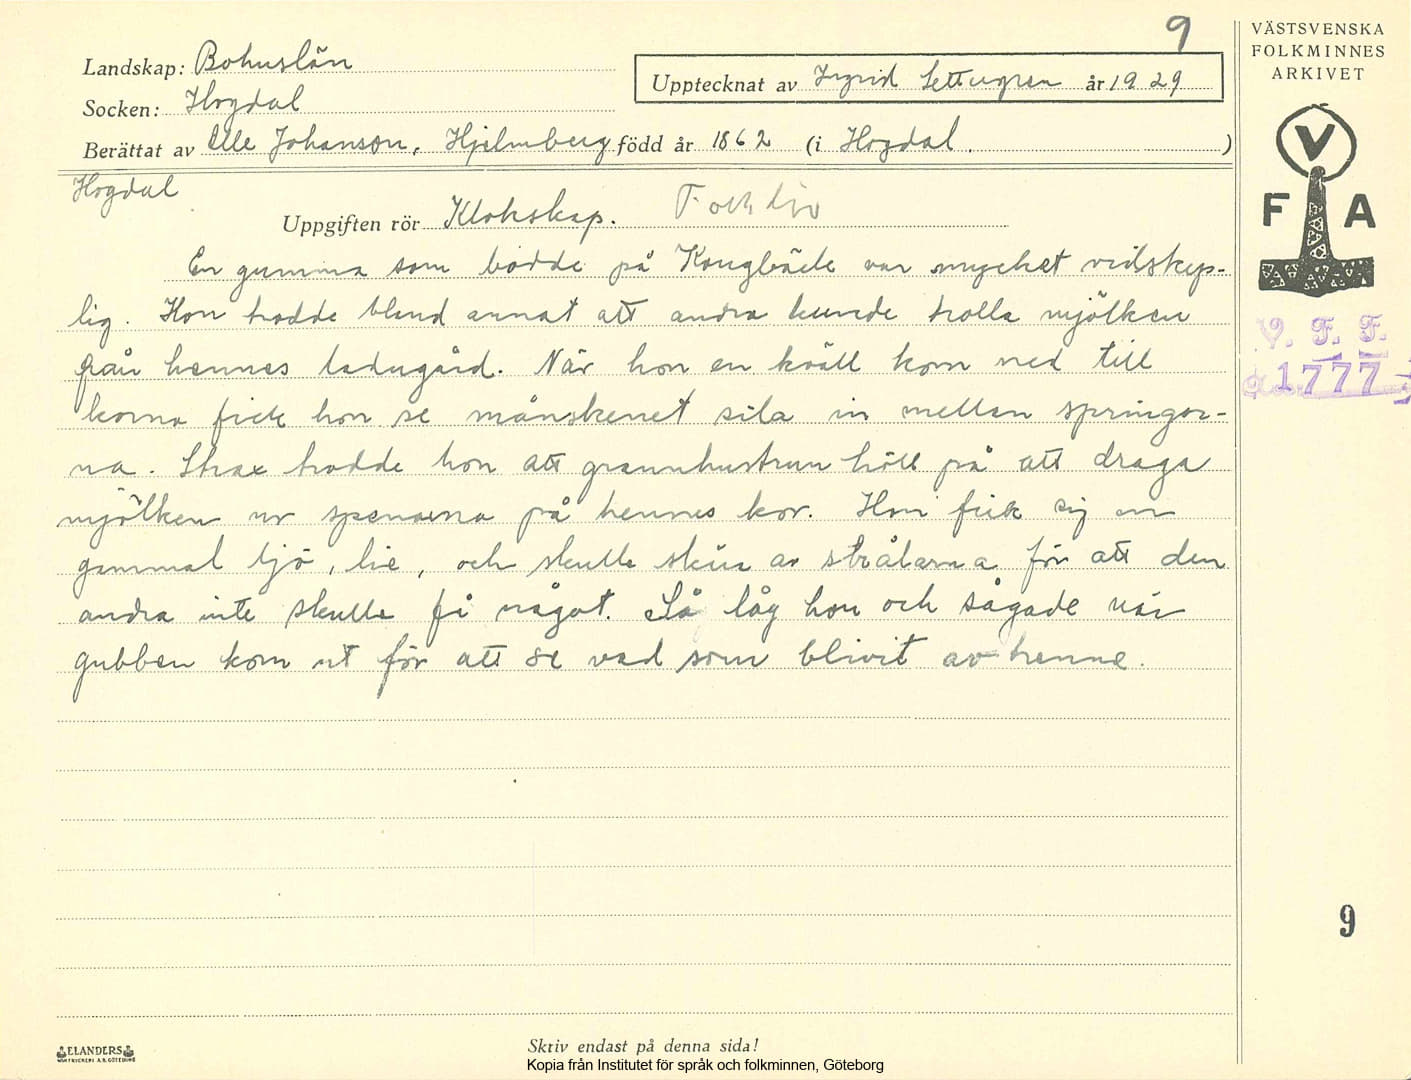 9
VÄSTSVENSKA
FOLKMINNES
ARKIVET
Landskap: Bohuslän
Upptecknat av Ingrid Settergren år 1929
Socken: Hogdal
Berättat av Elle Johanson, Hjelmberg född år 1862 (i Hogdal. )
Hogdal
Uppgiften rör Klokskap.
V
F A
En gumma som bodde på Kongbäck var mycket vidskep-
lig. Hon trodde bland annat att andra kunde trolla mjölken
från hennes ladugård. När hon en kväll kom ned till
korna fick hon se månskenet sila in mellan springor-
na. Strax trodde hon att grannhustrun höll på att draga
mjölken ur spenarna på hennes kor. Hon fick sig en
gammal ljö, lie, och skulle skära av strålarna för att den
andra inte skulle få något. Så låg hon och sågade när
gubben kom ut för att se vad som blivit av henne.
V. F. F.
1777
9
ELANDERS
Skriv endast på denna sida!
Kopia från Institutet för språk och folkminnen, Göteborg